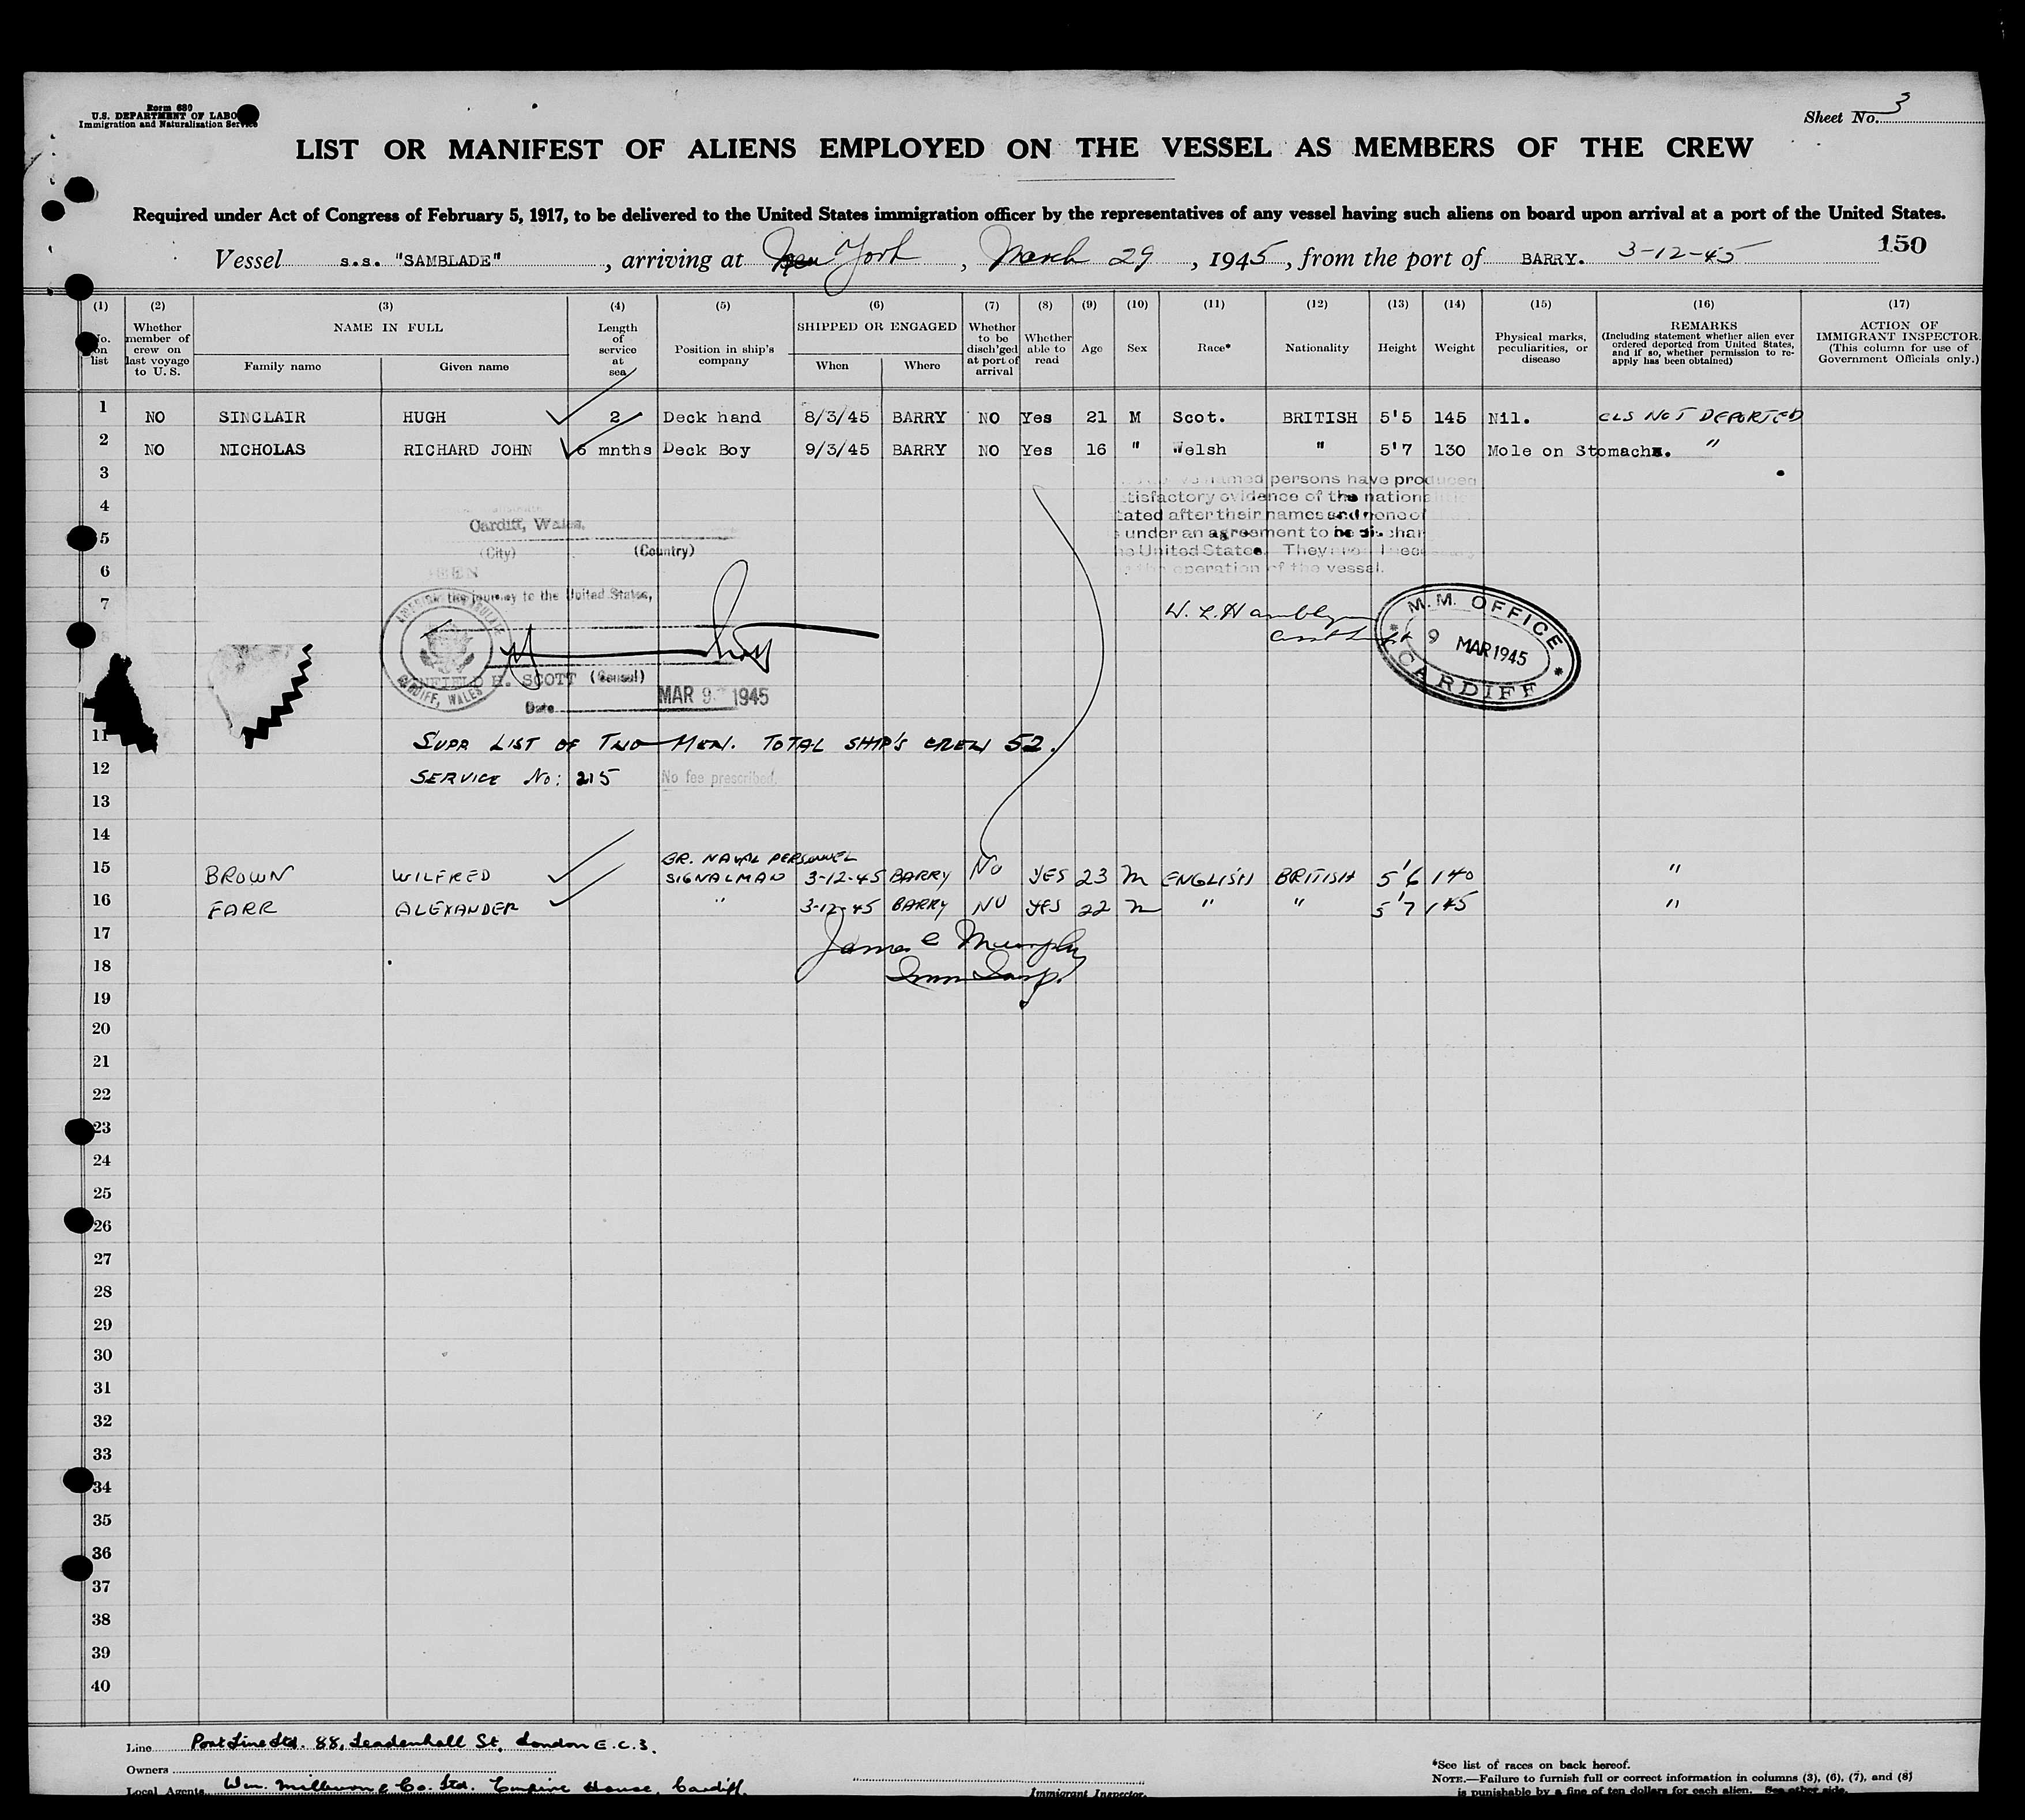 Form 680
U.S. DEPARTMENT OF LABO
Immigration and Naturalization Service
Sheet No. 3
LIST OR MANIFEST OF ALIENS EMPLOYED ON THE VESSEL AS MEMBERS OF THE CREW
Required under Act of Congress of February 5, 1917, to be delivered to the United States immigration officer by the representatives of any vessel having such aliens on board upon arrival at a port of the United States.
150
Vessel s.s. "SAMBLADE", arriving at New York, March 29, 1945, from the port of BARRY. 3-12-45
(1) (2) (3) (4) (5) (6) (7) (8) (9) (10) (11) (12) (13) (14) (15) (16) (17)
No. on list
Whether member of crew on last voyage to U. S.
NAME IN FULL
Family name Given name
Length of service at sea
Position in ship's company
SHIPPED OR ENGAGED
When Where
Whether to be disch'ged at port of arrival
Whether able to read
Age
Sex
Race*
Nationality
Height
Weight
Physical marks, peculiarities, or disease
REMARKS
(Including statement whether alien ever ordered deported from United States, and if so, whether permission to re-apply has been obtained)
ACTION OF IMMIGRANT INSPECTOR
(This column for use of Government Officials only.)
1 NO SINCLAIR HUGH 2 Deck hand 8/3/45 BARRY NO Yes 21 M Scot. BRITISH 5'5 145 Nil. CLS NOT DEPORTED
2 NO NICHOLAS RICHARD JOHN 6 mnths Deck Boy 9/3/45 BARRY NO Yes 16 " Welsh " 5'7 130 Mole on Stomach. "
3
4
5
6
7
named persons have produced
tisfactory evidence of the nation
tated after their names and none of
under an agreement to be dischar
he United States. They
the operation of the vessel.
Cardiff, Wales.
(City) (Country)
the journey to the United States,
AMERICAN CONSULATE
CARDIFF, WALES
NFIELD H. SCOTT (Consul)
Date MAR 9 1945
W. L. Hamblyn
M.M. OFFICE
9 MAR 1945
CARDIFF
11 SUPP LIST OF TWO MEN. TOTAL SHIP'S CREW 52.
12 SERVICE No: 215 No fee prescribed.
13
14
BR. NAVAL PERSONNEL
15 BROWN WILFRED SIGNALMAN 3-12-45 BARRY No YES 23 M ENGLISH BRITISH 5'6 140 "
16 FARR ALEXANDER " 3-12-45 BARRY NO YES 22 M " " 5'7 145 "
17 James C Murphy
18 Imm Insp.
19
20
21
22
23
24
25
26
27
28
29
30
31
32
33
34
35
36
37
38
39
40
Line Port Line Ltd. 88, Leadenhall St, London E.C.3.
Owners
Local Agents Wm. & Co. Ltd. Empire House, Cardiff.
Immigrant Inspector.
*See list of races on back hereof.
NOTE.—Failure to furnish full or correct information in columns (3), (6), (7), and (8)
is punishable by a fine of ten dollars for each alien. See other side.